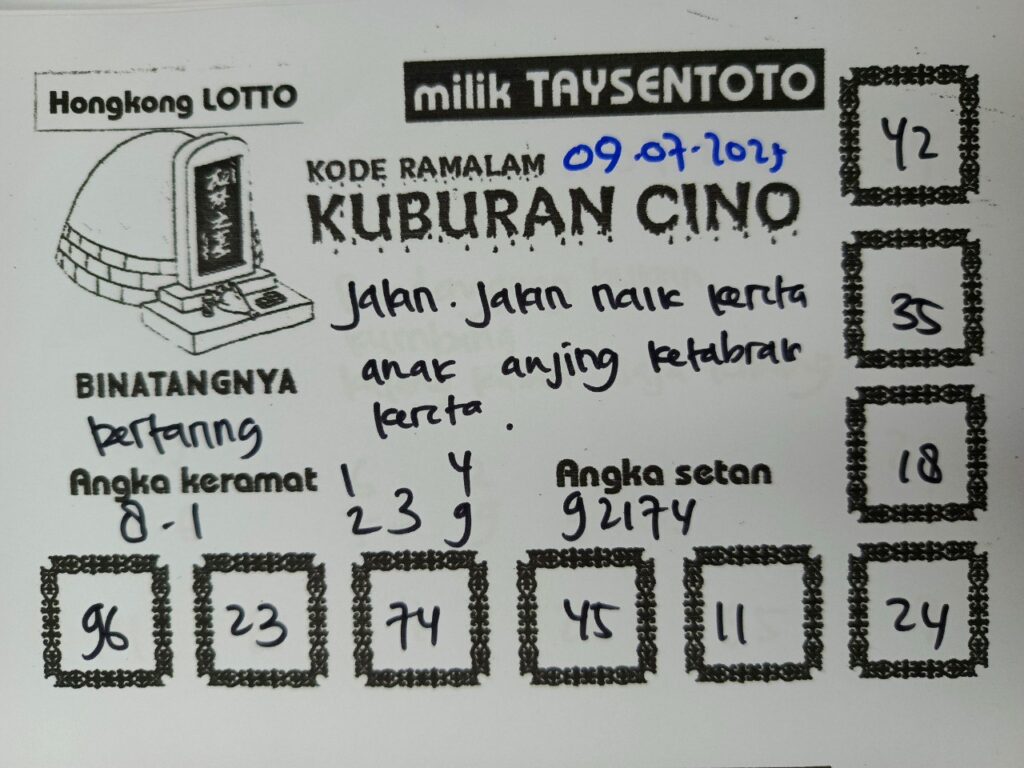 Hongkong LOTTO
milik TAYSENTOTO
KODE RAMALAM 09.07.2025
KUBURAN CINO
Jalan. Jalan naik kereta
anak anjing ketabrak
kereta.
BINATANGNYA
bertaring
Angka keramat
8-1
1 4
2 3 9
Angka setan
92174
42
35
18
96 23 74 45 11 24